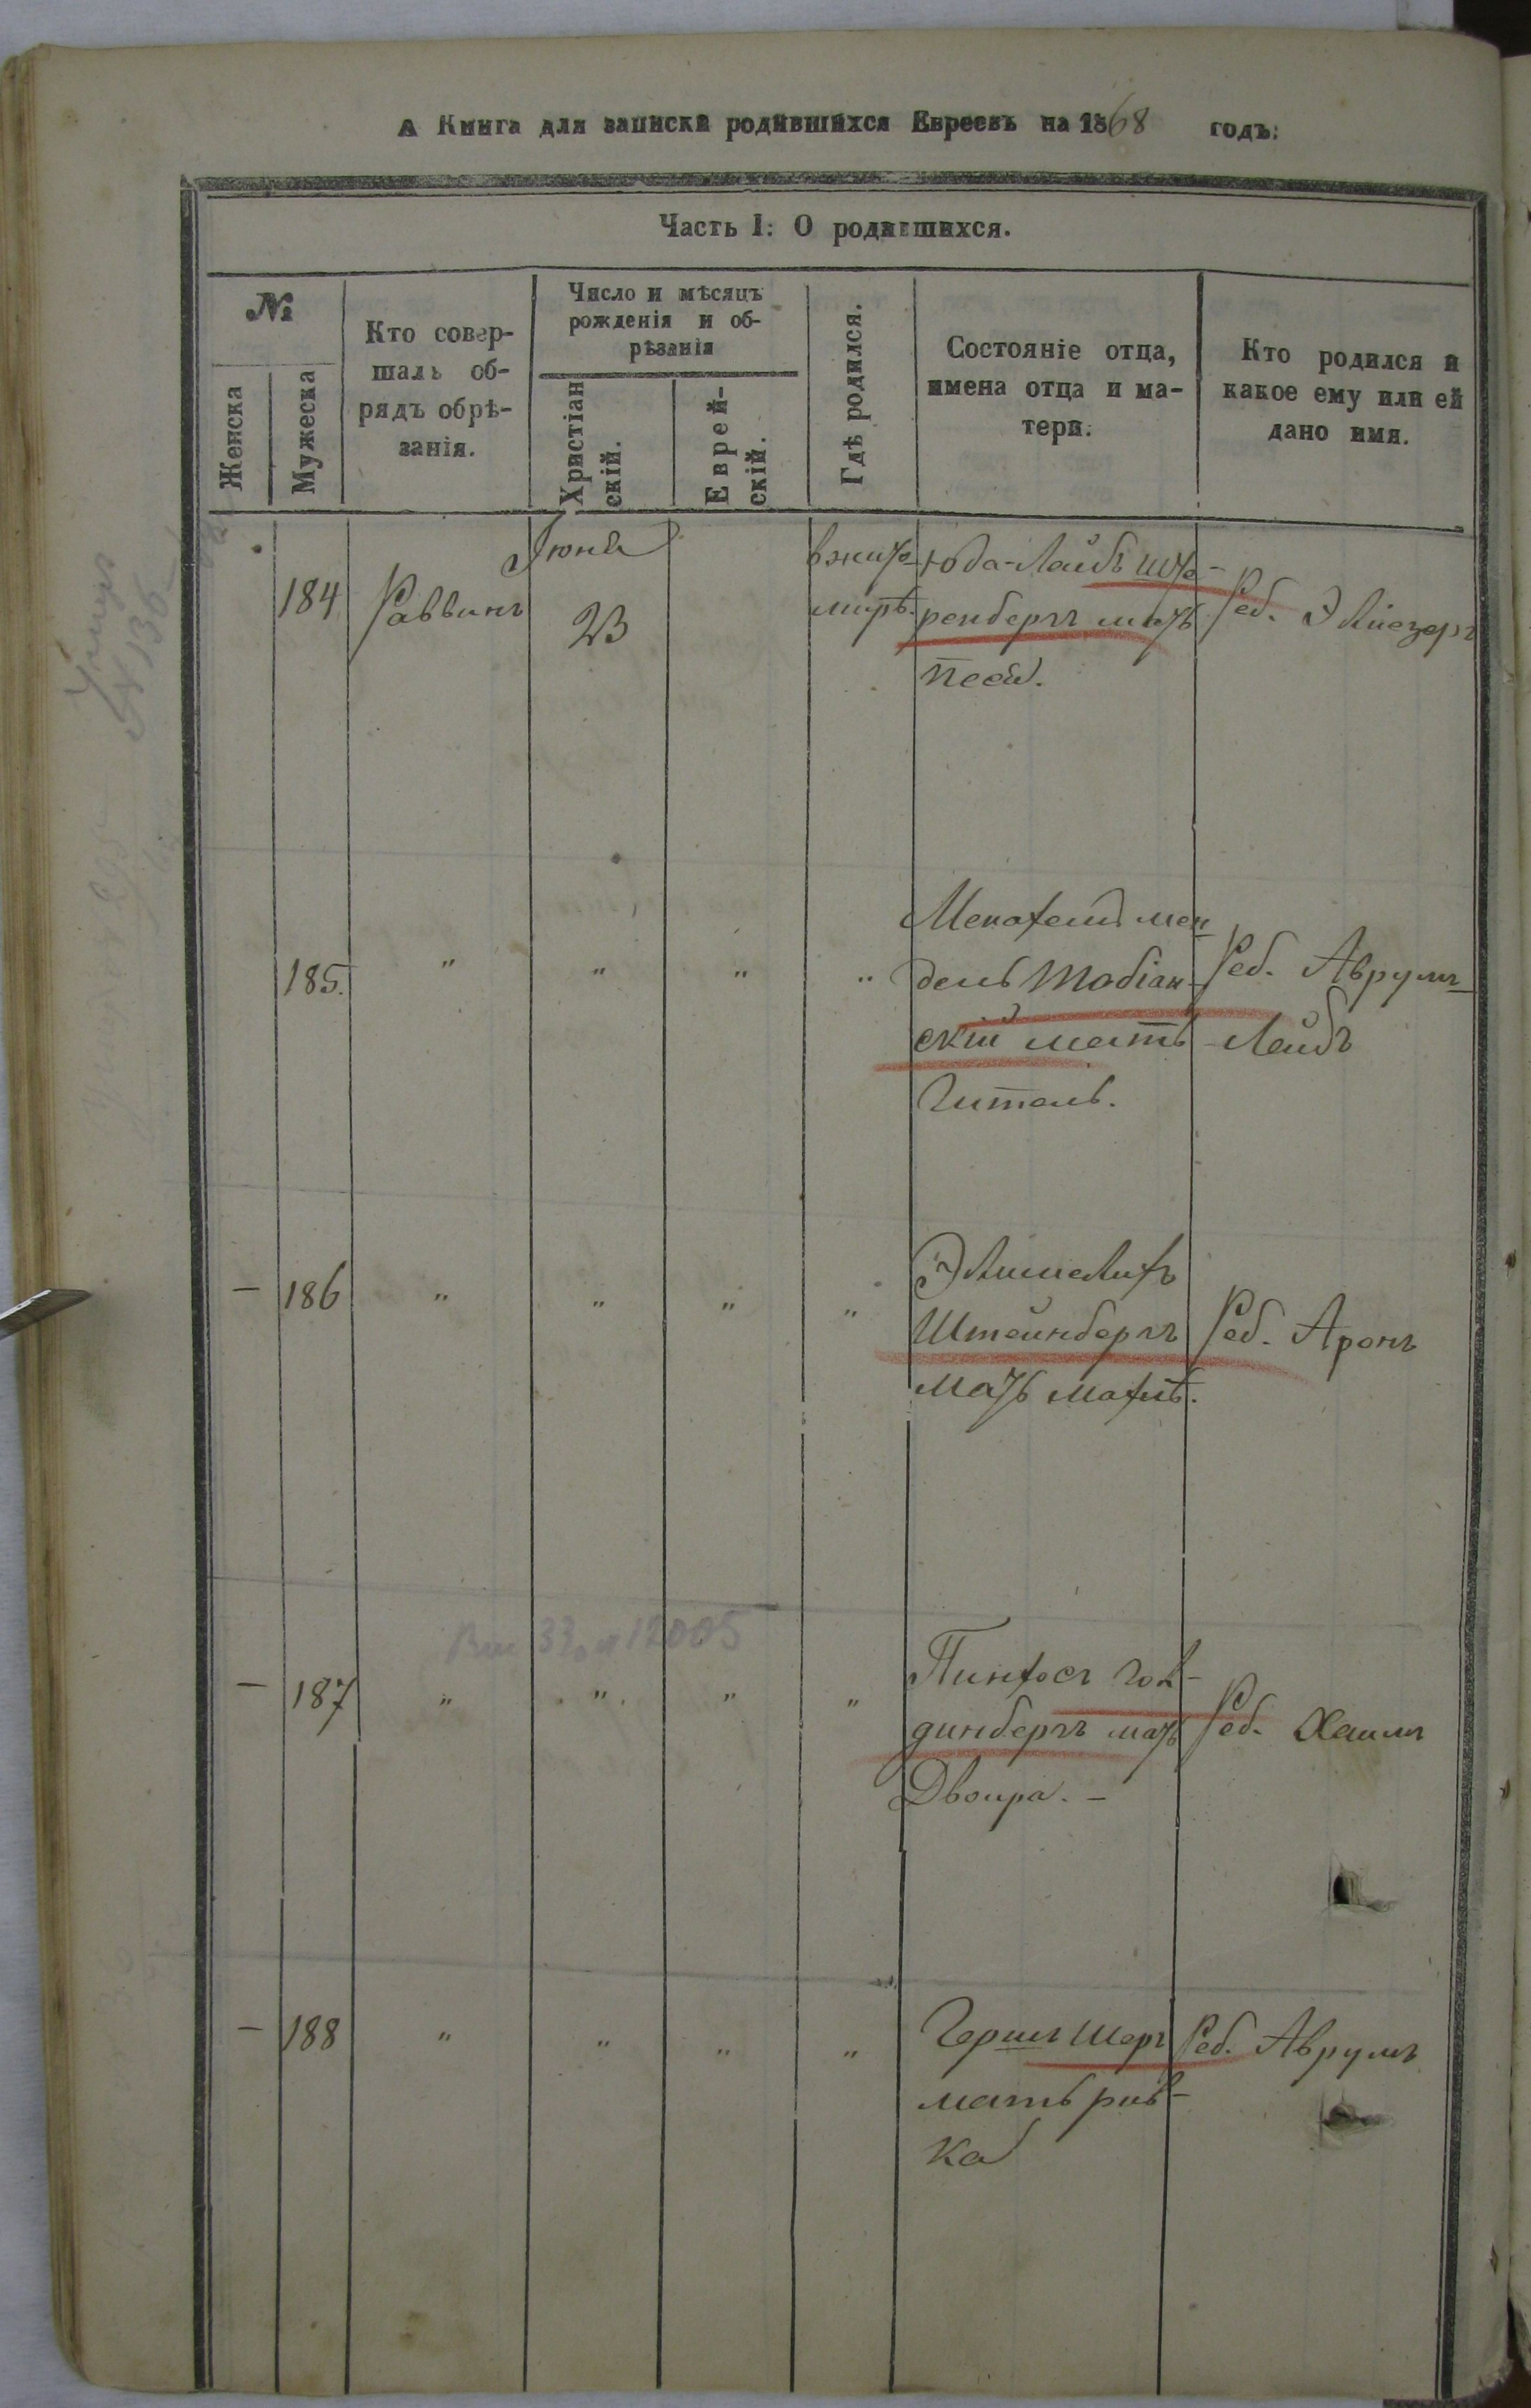 А Книга для записки родившихся Евреевъ на 1868 годъ:
Часть I: О родившихся.
№
Женска
Мужеска
Кто совер-
шалъ об-
рядъ обрѣ-
занія.
Число и мѣсяцъ
рожденія и об-
рѣзанія
Христіан
скій.
Еврей-
скій.
Гдѣ родился.
Состояніе отца,
имена отца и ма-
тери.
Кто родился и
какое ему или ей
дано имя.
Іюня
184 Раввинъ 23 в жито
миръ.
Юда-Лейбъ Ште-
ренбергъ мать
песя.
Реб. Элиезеръ
185. " " " "
Менахемъ мен
дель Тобіан-
скій мать
Гитель.
Реб. Аврумъ
Лейбъ
— 186 " " " "
Элимелихъ
Штейнбергъ
мать махлѣ.
Реб. Аронъ
— 187 " " " "
Пинхосъ гол-
динбергъ мать
Двойра. —
Реб. Хаимъ
— 188 " " " "
Гершъ Шеръ
мать рив-
ка
Реб. Аврумъ
12005